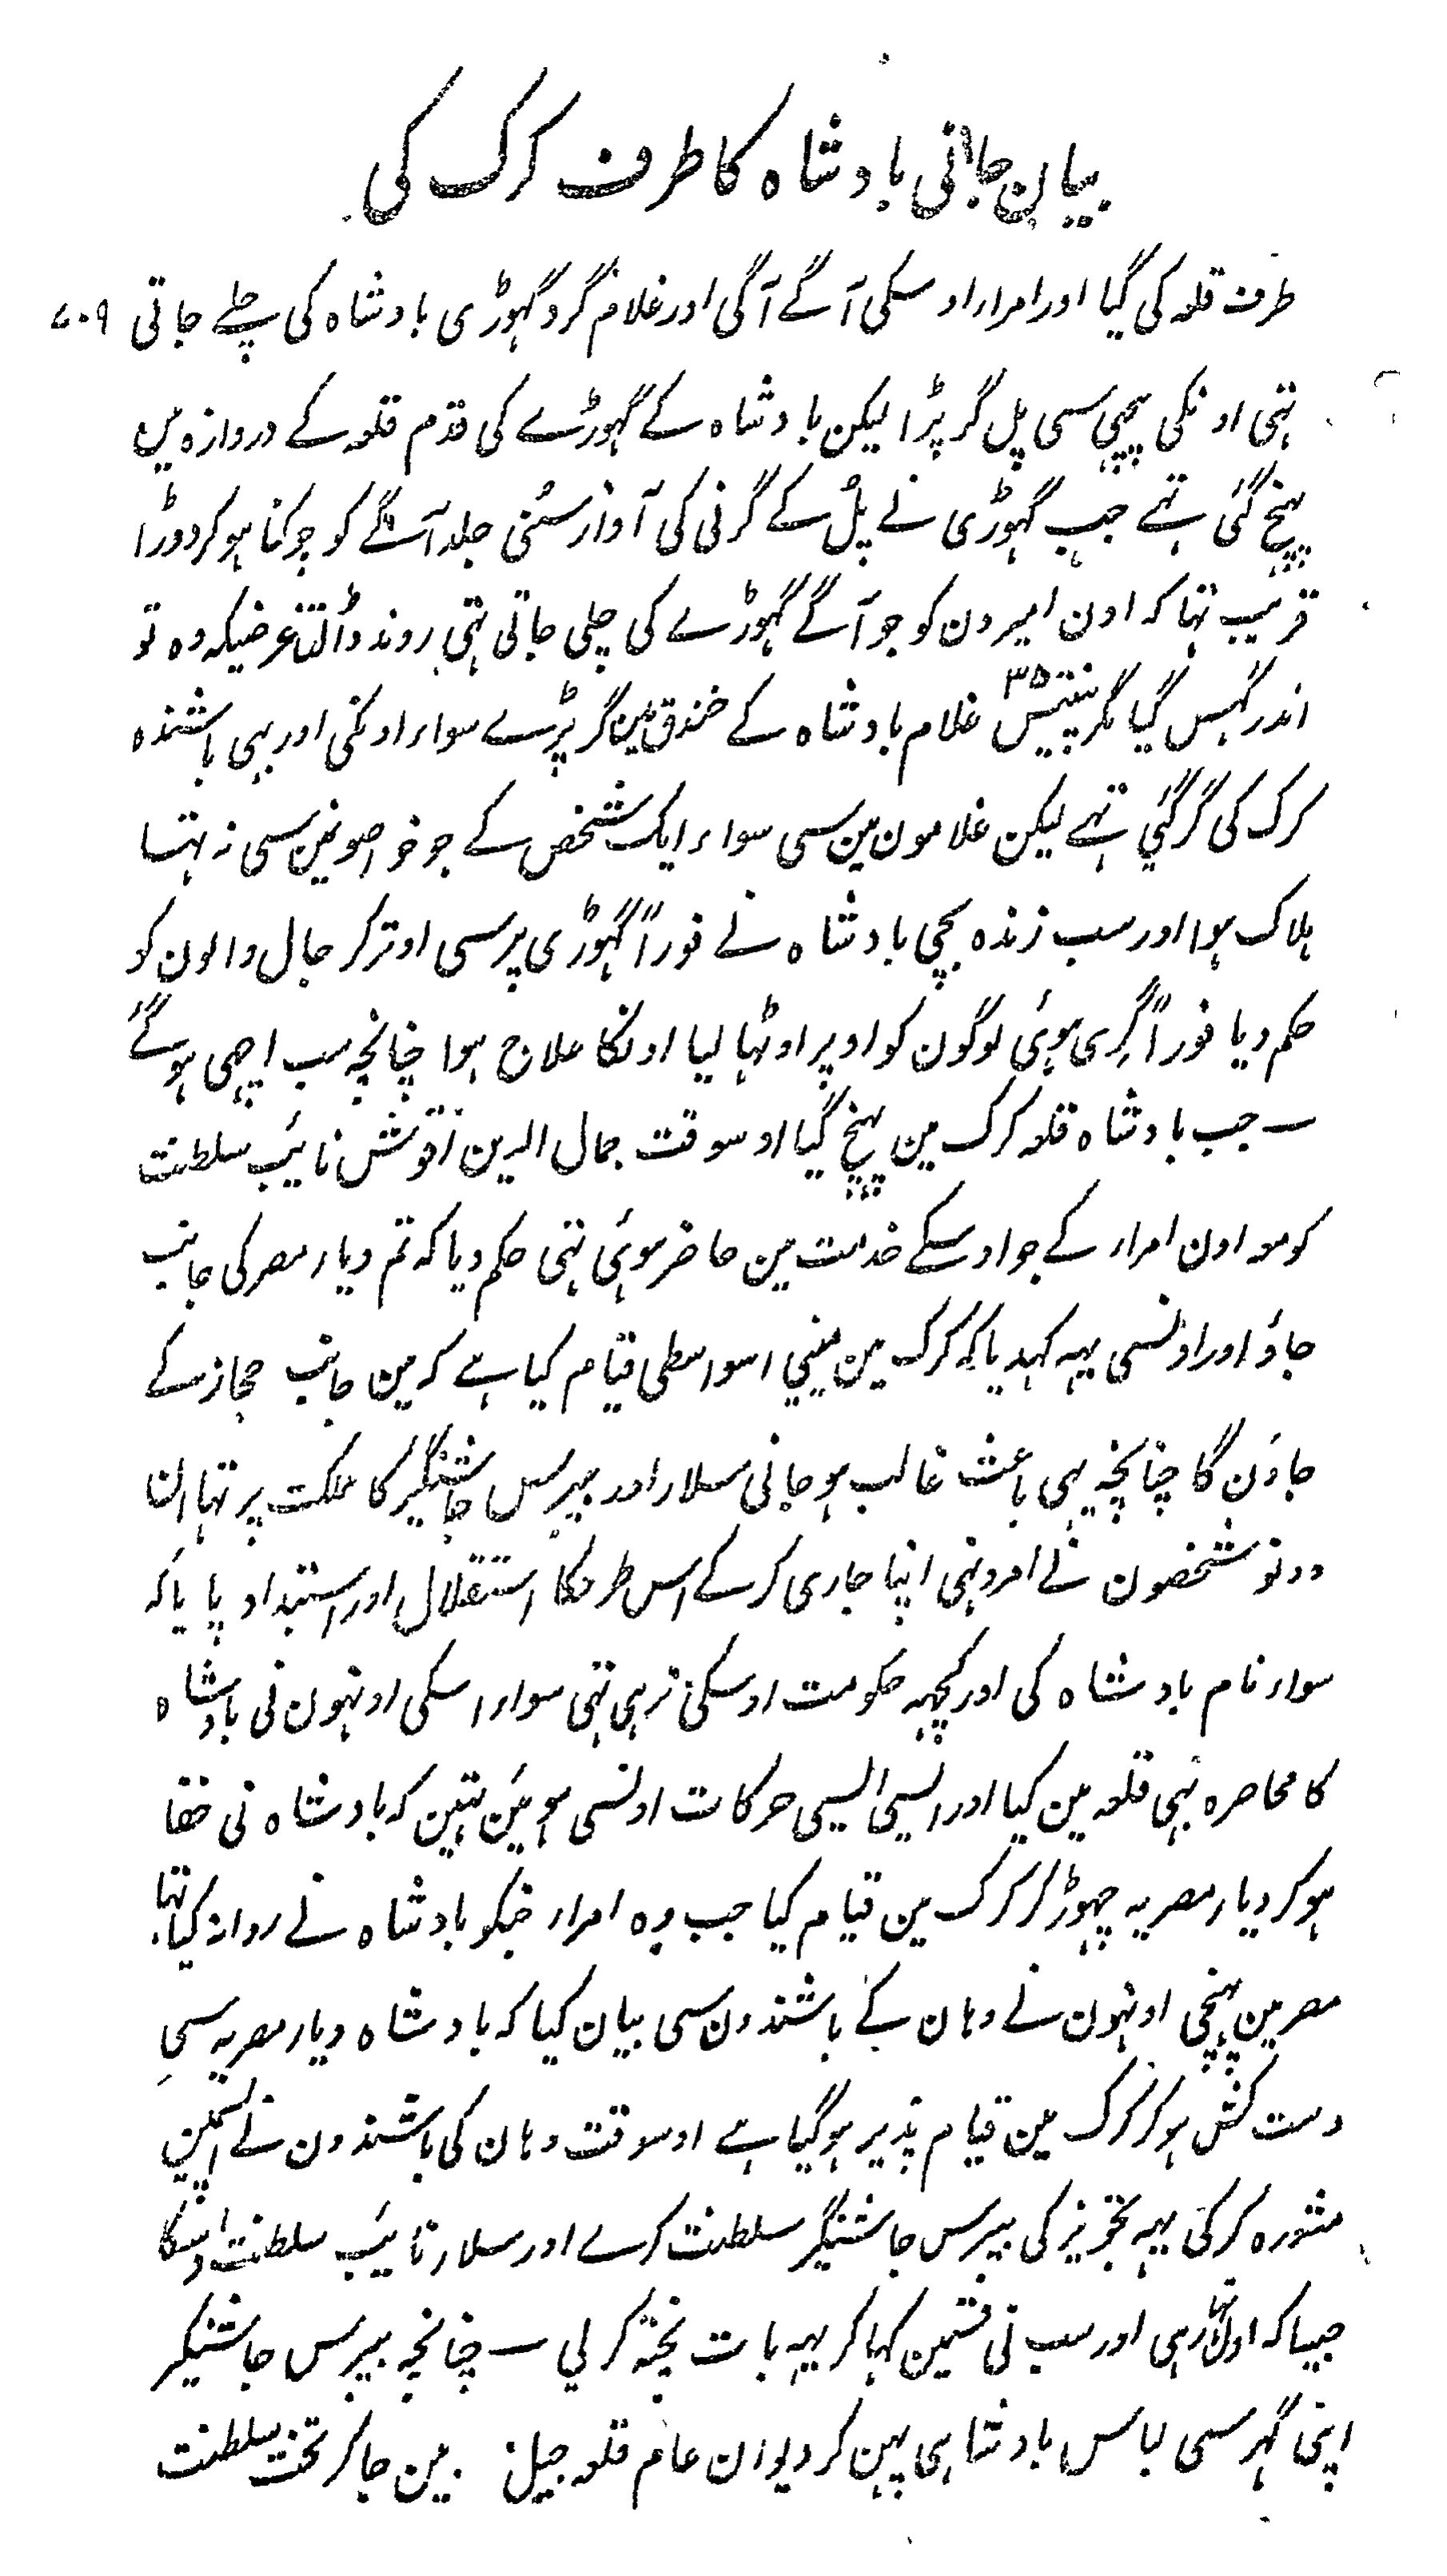 بیان جانی بادشاہ کا طرف کرک کی
طرف قلعہ کی گیا اور امراء اوسکی آگے آگی اور غلام گرد گہوڑی بادشاہ کی چلے جاتی ۷۰۹
تہی اونکی پیچہی سی پل گر پڑا لیکن بادشاہ کے گہوڑے کی قدم قلعہ کے دروازہ میں
پہنچ گئی تہے جب گہوڑی نے پُل کے گرنی کی آواز سُنی جلد آگے کو چوکنا ہو کر دوڑا
قریب تہا کہ اون امیرون کو جو آگے گہوڑے کی چلی جاتی تہی روند ڈالتا غرضیکہ وہ تو
اندر گہس گیا مگر پینتیس ۳۵ غلام بادشاہ کے خندق مین گر پڑے سواء اونکی اور بہی باشندہ
کرک کی گر گئی تہے لیکن غلامون مین سی سواء ایک شخص کے جو خواصونمین سی نہ تہا
ہلاک ہوا اور سب زندہ بچی بادشاہ نے فوراً گہوڑی پر سی اوتر کر جال والون کو
حکم دیا فوراً گِری ہوئی لوگون کو اوپر اوٹہا لیا اونکا علاج ہوا چنانچہ سب اچہی ہو گئے
ــ جب بادشاہ قلعہ کرک مین پہنچ گیا اوسوقت جمال الدین اقوش نائب سلطنت
کو معہ اون امراء کے جو اوسکے خدمت مین حاضر ہوئی تہی حکم دیا کہ تم دیار مصر کی جانب
جاؤ اور اونسی یہہ کہدیا کہ کرک مین مینی اسواسطی قیام کیا ہے کہ مین جانب حجاز کے
جاؤن گا چنانچہ یہی باعث غالب ہو جانی سلار اور بیبرس جاشنگیر کا مملکت پر تہا ان
دونو شخصون نے امر و نہی اپنا جاری کر کے اس طرحکا استقلال اور استبداد پایا کہ
سواء نام بادشاہ کی اور کچہہ حکومت اوسکی نرہی تہی سواء اسکی اونہون نی بادشاہ
کا محاصرہ بہی قلعہ مین کیا اور ایسی ایسی حرکات اونسی ہوئین تہین کہ بادشاہ نی خفا
ہو کر دیار مصریہ چہوڑ کر کرک مین قیام کیا جب وہ امراء جنکو بادشاہ نے روانہ کیا تہا
مصر مین پہنچی اونہون نے وہان کے باشندون سی بیان کیا کہ بادشاہ دیار مصریہ سی
دست کش ہو کر کرک مین قیام پذیر ہو گیا ہے اوسوقت وہان کی باشندون نے آپسمین
مشورہ کر کی یہہ تجویز کی بیبرس جاشنگیر سلطنت کرے اور سلار نائب سلطنت اوسکا
جیسا کہ اول تہا رہی اور سب نی قسمین کہا کر یہہ بات پختہ کر لی ــ چنانچہ بیبرس جاشنگیر
اپنی گہر سی لباس بادشاہی پہن کر دیوان عام قلعہ جبل مین جا کر تخت سلطنت